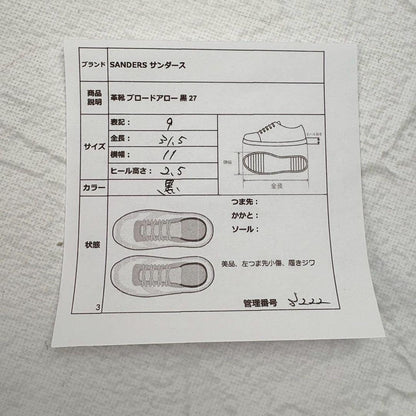 ブランド SANDERS サンダース
商品説明 革靴 ブロードアロー 黒 27
サイズ
表記： 9
全長： 31.5
横幅： 11
ヒール高さ： 2.5
全長
カラー 黒
状態
つま先：
かかと：
ソール：
美品、左つま先小傷、履きジワ
3
管理番号